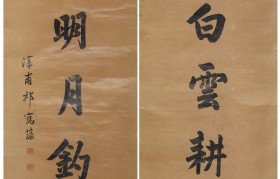 白雲耕
明月釣
淳甫祁寯藻